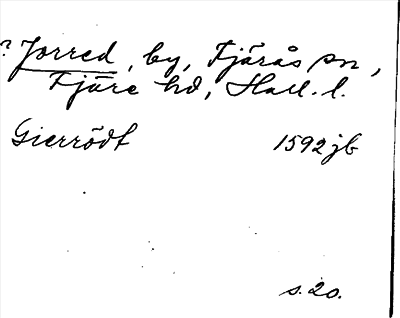 ? Jorred, by, Fjärås sn,
Fjäre hd, Hall. l.
Gierrödt 1592 jb
s. 20.